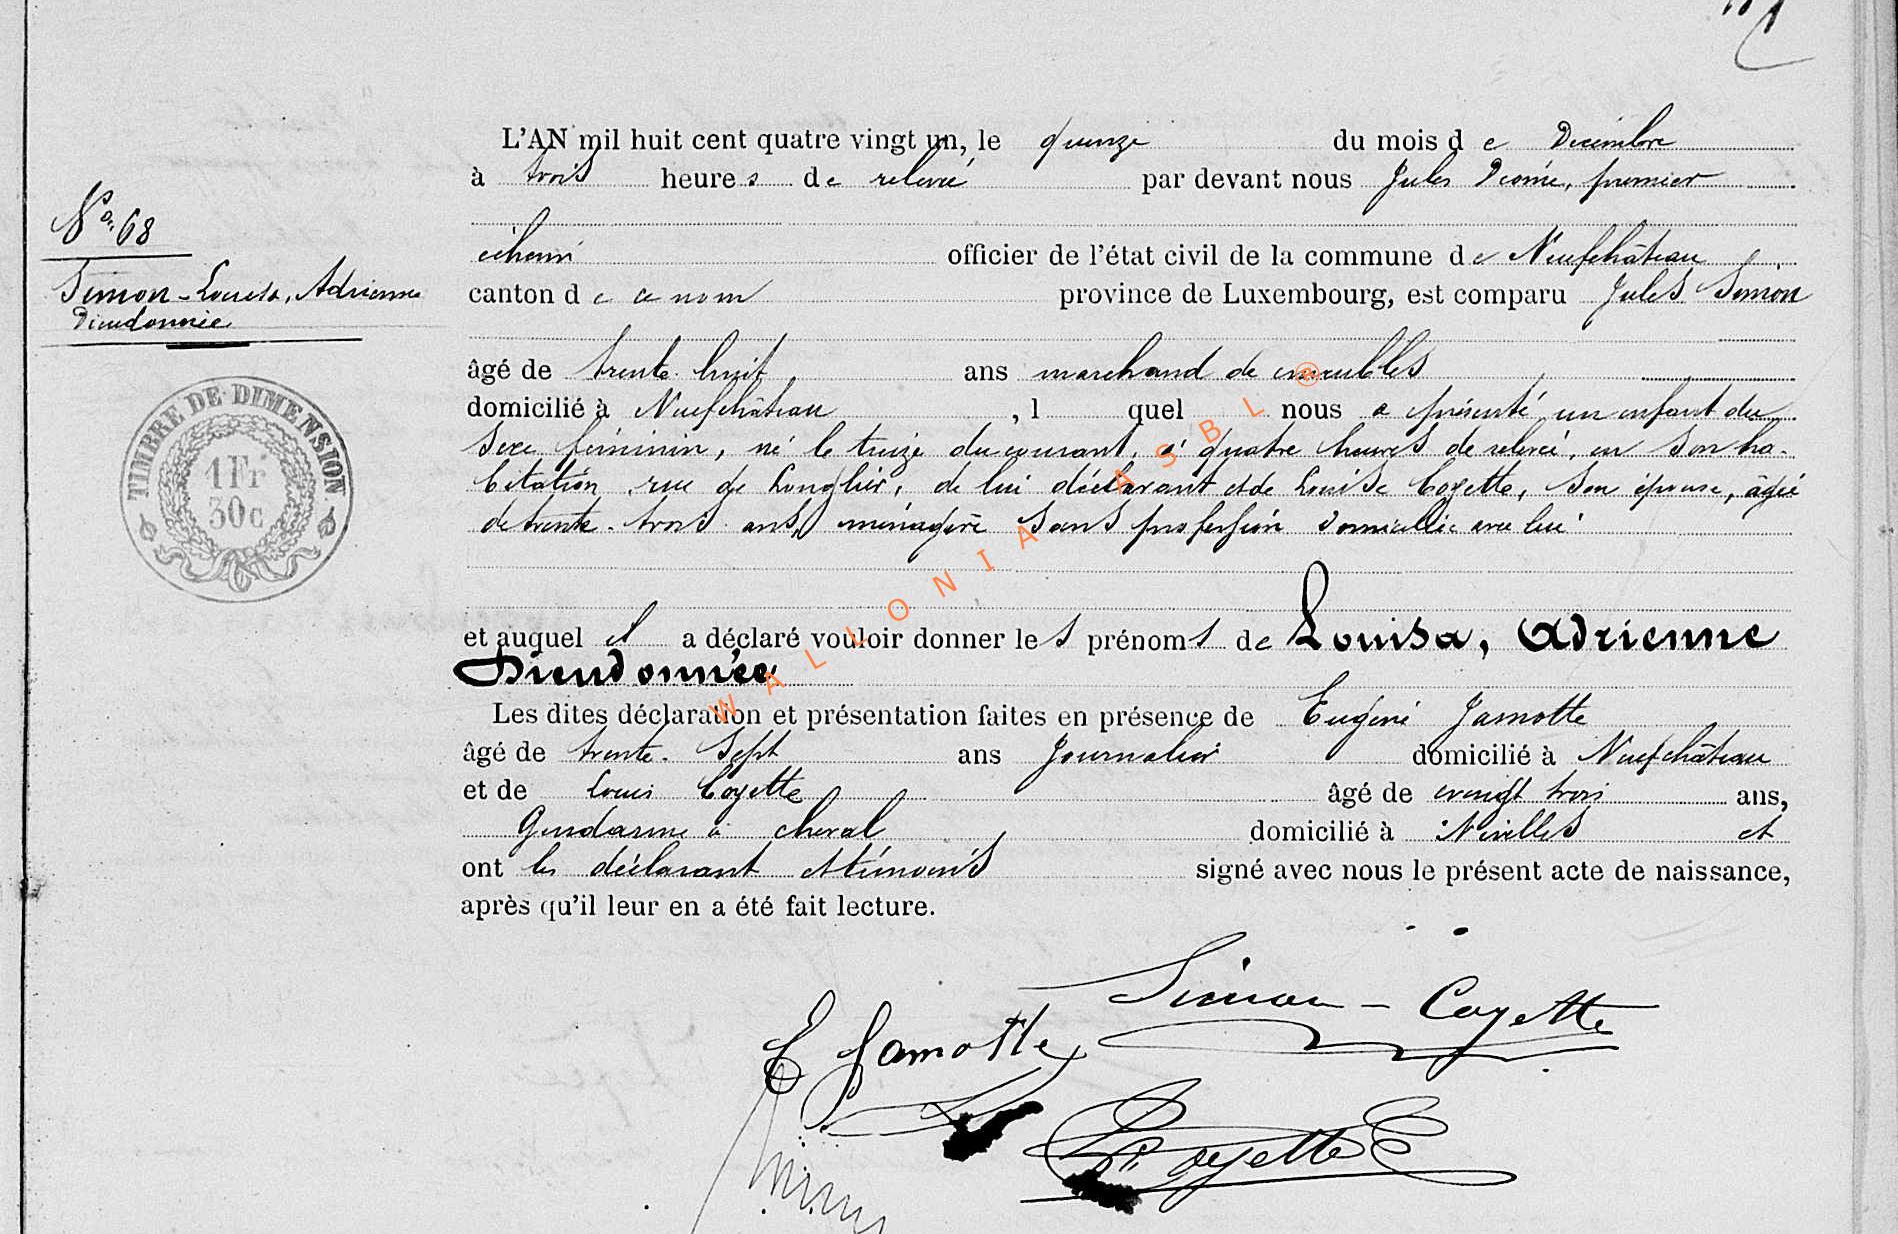 L'AN mil huit cent quatre vingt un, le quinze du mois de Décembre
à trois heures de relevée par devant nous Jules Diomé, premier
Nº 68
échevin officier de l'état civil de la commune de Neufchâteau
Simon-Louisa, Adrienne
canton de ce nom province de Luxembourg, est comparu Jules Simon
Dieudonnée
âgé de trente huit ans marchand de meubles
domicilié à Neufchâteau, l quel nous a présenté un enfant du
sexe féminin, né le treize du courant, à quatre heures de relevée, en son ha-
bitation, rue de Longlier, de lui déclarant et de Louise Coyette, son épouse, âgée
de trente-trois ans, ménagère sans profession domiciliée avec lui
TIMBRE DE DIMENSION
1 Fr
30c
et auquel il a déclaré vouloir donner les prénoms de Louisa, Adrienne
Dieudonnée
Les dites déclaration et présentation faites en présence de Eugène Jamotte
âgé de trente-sept ans Journalier domicilié à Neufchâteau
et de Louis Coyette âgé de vingt trois ans,
Gendarme à cheval domicilié à Nivelles et
ont les déclarant et témoins signé avec nous le présent acte de naissance,
après qu'il leur en a été fait lecture.
Simon-Coyette
E Jamotte
L Coyette
WALLONIA ASBL ®